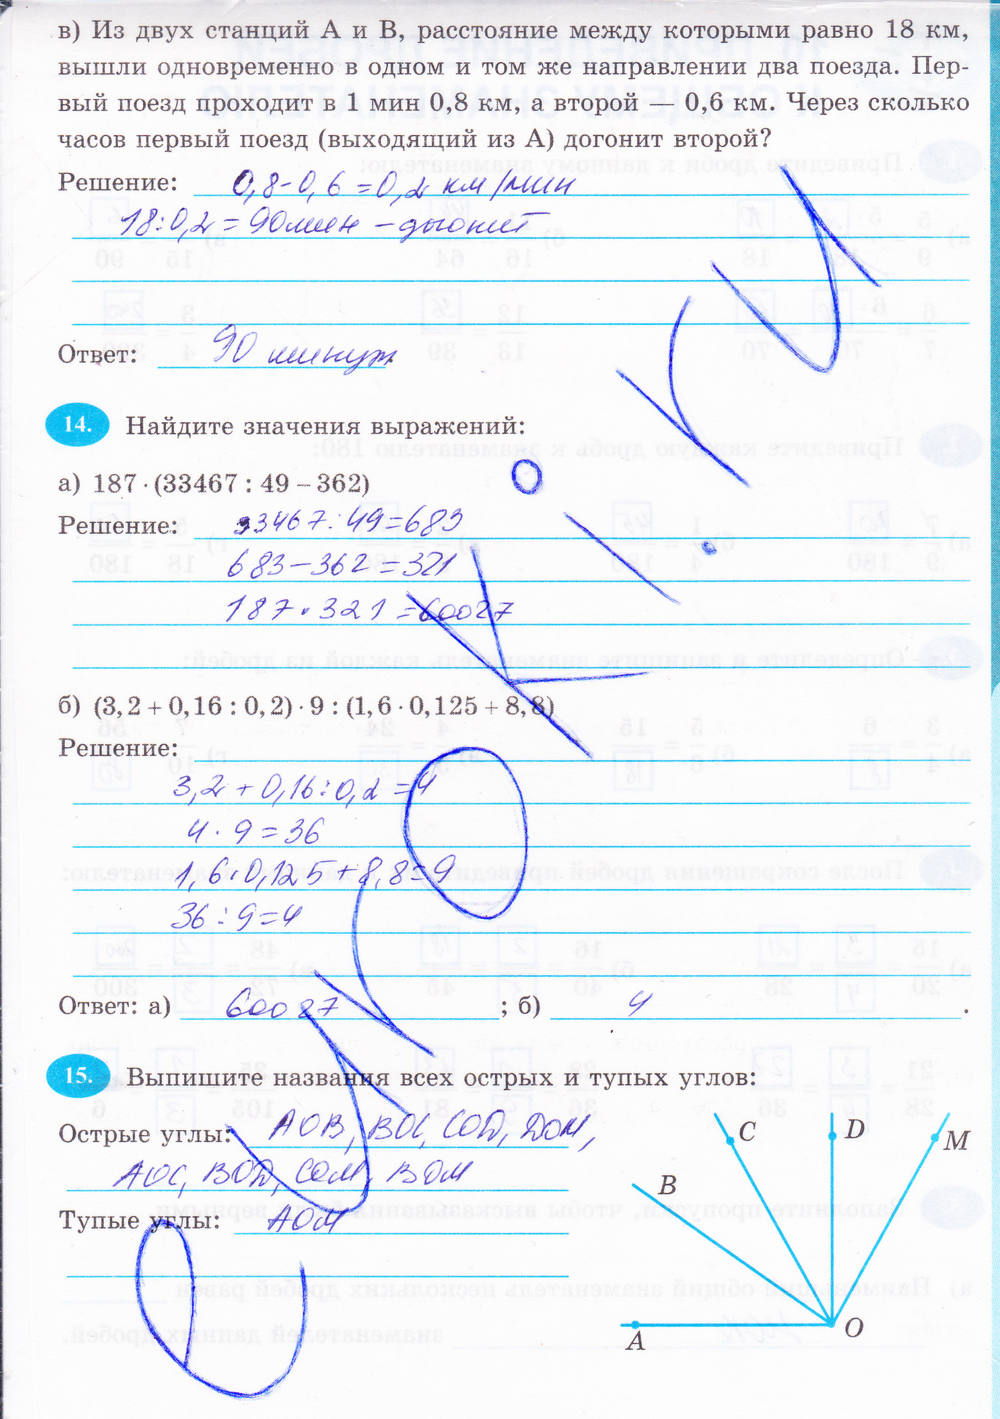 в) Из двух станций А и В, расстояние между которыми равно 18 км,
вышли одновременно в одном и том же направлении два поезда. Пер-
вый поезд проходит в 1 мин 0,8 км, а второй — 0,6 км. Через сколько
часов первый поезд (выходящий из А) догонит второй?
Решение: 0,8-0,6=0,2 км/мин
18:0,2=90мин – догонит
Ответ: 90 минут
14. Найдите значения выражений:
а) 187 · (33467 : 49 – 362)
Решение: 33467:49=683
683-362=321
187·321=60027
б) (3,2 + 0,16 : 0,2) · 9 : (1,6 · 0,125 + 8,8)
Решение:
3,2+0,16:0,2=4
4·9=36
1,6·0,125+8,8=9
36:9=4
Ответ: а) 60027 ; б) 4 .
15. Выпишите названия всех острых и тупых углов:
Острые углы: AOB, BOC, COD, DOM,
AOC, BOD, COM, BOM
Тупые углы: AOM
C
D
M
B
A
O